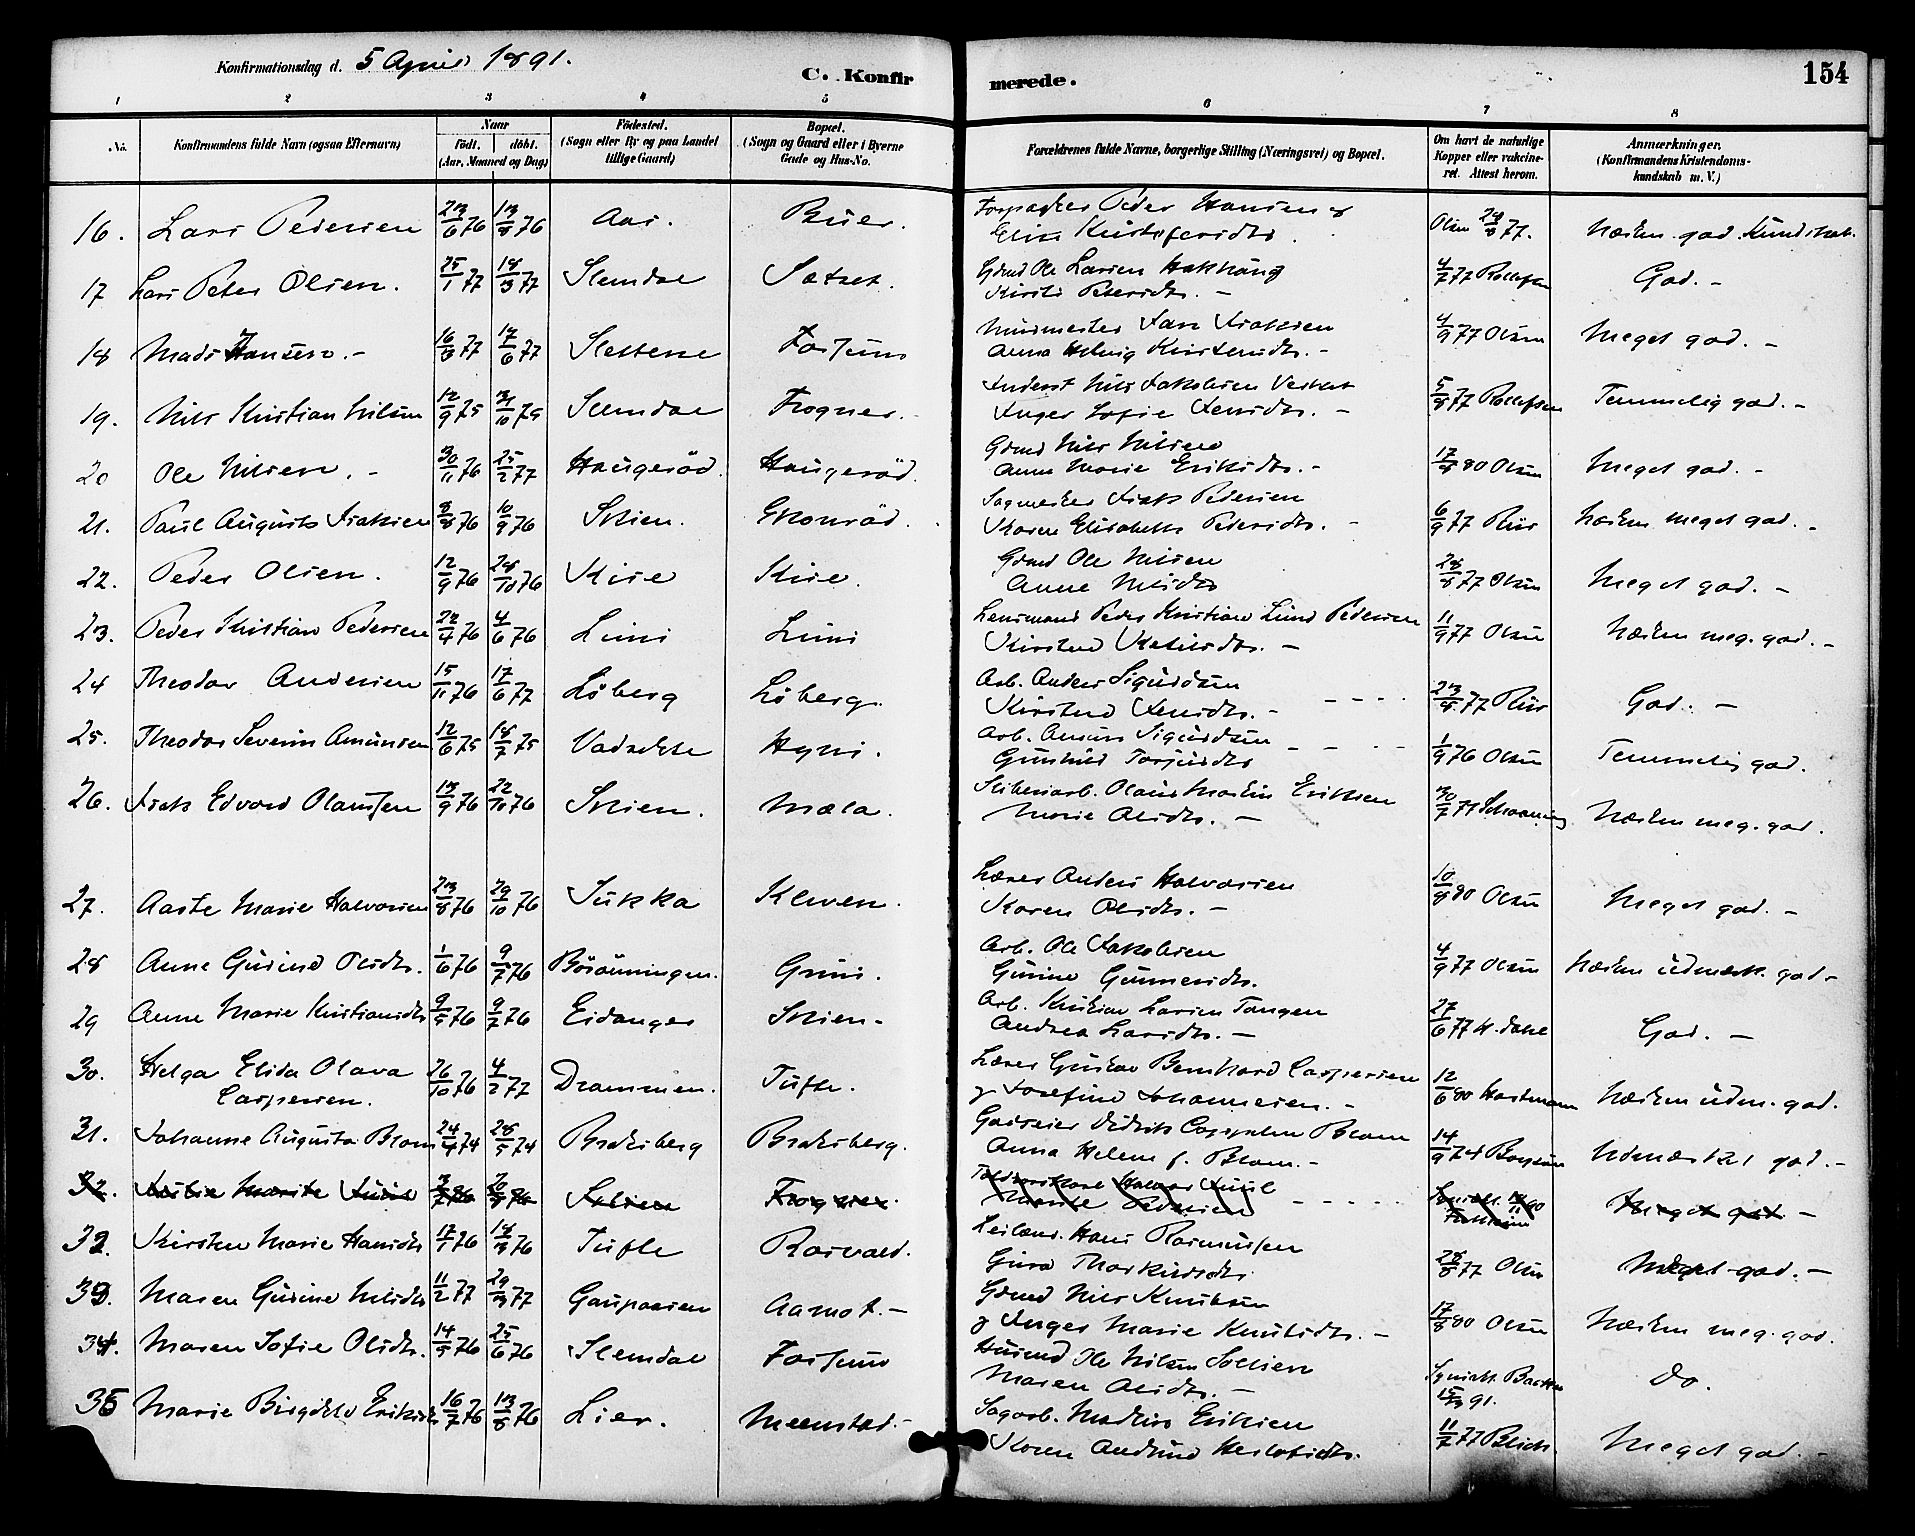 Konfirmationsdag d. 5 April 1891.
C. Konfirmerede.
154
1 2 3 4 5 6 7 8
No.
Konfirmandens fulde Navn (ogsaa Efternavn)
Naar
födt. döbt.
(Aar, Maaned og Dag)
Födested.
(Sogn eller By og paa Landet
tillige Gaard)
Bopæl.
(Sogn og Gaard eller i Byerne
Gade og Hus-No.
Forældrenes fulde Navne, borgerlige Stilling (Næringsvei) og Bopæl.
Om havt de naturlige
Kopper eller vakcine-
ret. Attest herom.
Anmærkninger.
(Konfirmandens Kristendoms-
kundskab m. V.)
16. Lars Pedersen 23/6 76 13/8 76 Aas. Buer. Forpagter Peder Hansen &
Elise Kristofersdtr. Olsen 29/8 77. Næsten god Kundskab.
17 Lars Peter Olsen. 25/1 77 18/3 77 Slemdal Sætret. Gbmd Ole Larsen Hakhaug
Kirsti Petersdtr. – 4/7 77 Rollefsen God. –
18 Mads Hansen. – 16/3 77 17/6 77 Slettene Fossum Murmester Lars Isaksen
Anna Helvig Kristensdtr. – 4/9 77 Olsen Meget god. –
19. Nils Kristian Nilsen 12/9 75 31/10 75 Slemdal Frogner. Inderst Nils Jakobsen Vestet
Inger Sofie Jensdtr. – 5/8 77 Rollefsen Temmelig god. –
20 Ole Nilsen. – 30/11 76 25/2 77 Haugeröd. Haugeröd. Gbmd Nils Nilsen
Anne Marie Eriksdtr. – 17/8 80 Olsen Meget god. –
21. Paul August Isaksen 8/8 76 10/9 76 Skien. Gromröd. Sagmester Isak Pedersen
Karen Elisabeth Pedersdtr. – 6/9 77 Riis Næsten meget god. –
22. Peder Olsen. 12/9 76 28/10 76 Kise Kise. Gbmd Ole Nilsen
Anne Nilsdtr 28/8 77 Olsen Meget god. –
23. Peder Kristian Pedersen 22/4 76 4/6 76 Limi Limi Lensmand Peder Kristian Lund Pedersen
Kirstine Ketilsdtr. – 11/9 77 Olsen Næsten meg. god. –
24 Theodor Andersen 15/11 76 17/6 77 Löberg Löberg. Arb. Anders Sigurdsen
Kirstine Jensdtr. – 23/8 77 Riis God. –
25. Theodor Severin Amundsen 12/6 75 18/7 75 Vadrette Hyni. Arb. Amund Sigurdsen
Gunhild Torjusdtr 1/9 76 Olsen Temmelig god.
26. Isak Edvard Olaussen 13/9 76 22/10 76 Skien. Mæla. Sliberiarb. Olaus Martin Eriksen
Marie Olsdtr. – 30/7 77 Schaaning Næsten meg. god.
27. Aaste Marie Halvorsen 23/8 76 29/10 76 Sukka Kleven. Lærer Anders Halvorsen
Karen Olsdtr. – 10/8 80 Olsen Meget god. –
28 Anne Gurine Olsdtr. 1/6 76 9/7 76 Bösöuningen. Gruis. Arb. Ole Jakobsen
Gurine Gunnersdtr. 4/9 77 Olsen Næsten udmærk. god –
29 Anne Marie Kristiansdtr 9/5 76 9/7 76 Eidanger Skien – Arb. Kristian Larsen Tangen
Andrea Larsdtr. – 27/6 77 H. Dahl God. –
30. Helga Elida Olava
Caspersen. 26/10 76 4/2 77 Drammen. Tufte. Lærer Gustav Bernhard Caspersen
& Josefine Johannesen. – 12/6 80 Hartmann Næsten udm. god.
31. Johanne Augusta Blom 24/4 74 28/5 74 Bratsberg Bratsberg. Gaardeier Didrik Cappelen Blom
Anna Helene f. Blom. – 14/9 74 Boysen Udmærket god. –
32. Frogner. Meget god –
32. Kirsten Marie Hansdtr 17/1 76 18/3 76 Tufte Rosvald. Leilænd. Hans Rasmussen
Gura Thorkildsdtr 28/8 77 Olsen Meget god. –
33. Maren Gurine Nilsdtr 11/2 77 29/3 77 Gaupaasen Aamot. – Gbmd Nils Knutsen
& Inger Marie Knutsdtr. – 17/8 80 Olsen Næsten meg. god.
34. Maren Sofie Olsdtr. 14/5 76 25/6 76 Slemdal Fossum Husmd Ole Nilsen Sollien
Maren Olsdtr. – 15/3 91. Do.
35 Marie Birgitte Eriksdtr 16/7 76 13/8 76 Lier. Meenstad. – Sagarb. Mathias Eriksen
Karen Andrine Herlofsdtr. 11/7 77 Blich. Meget god. –